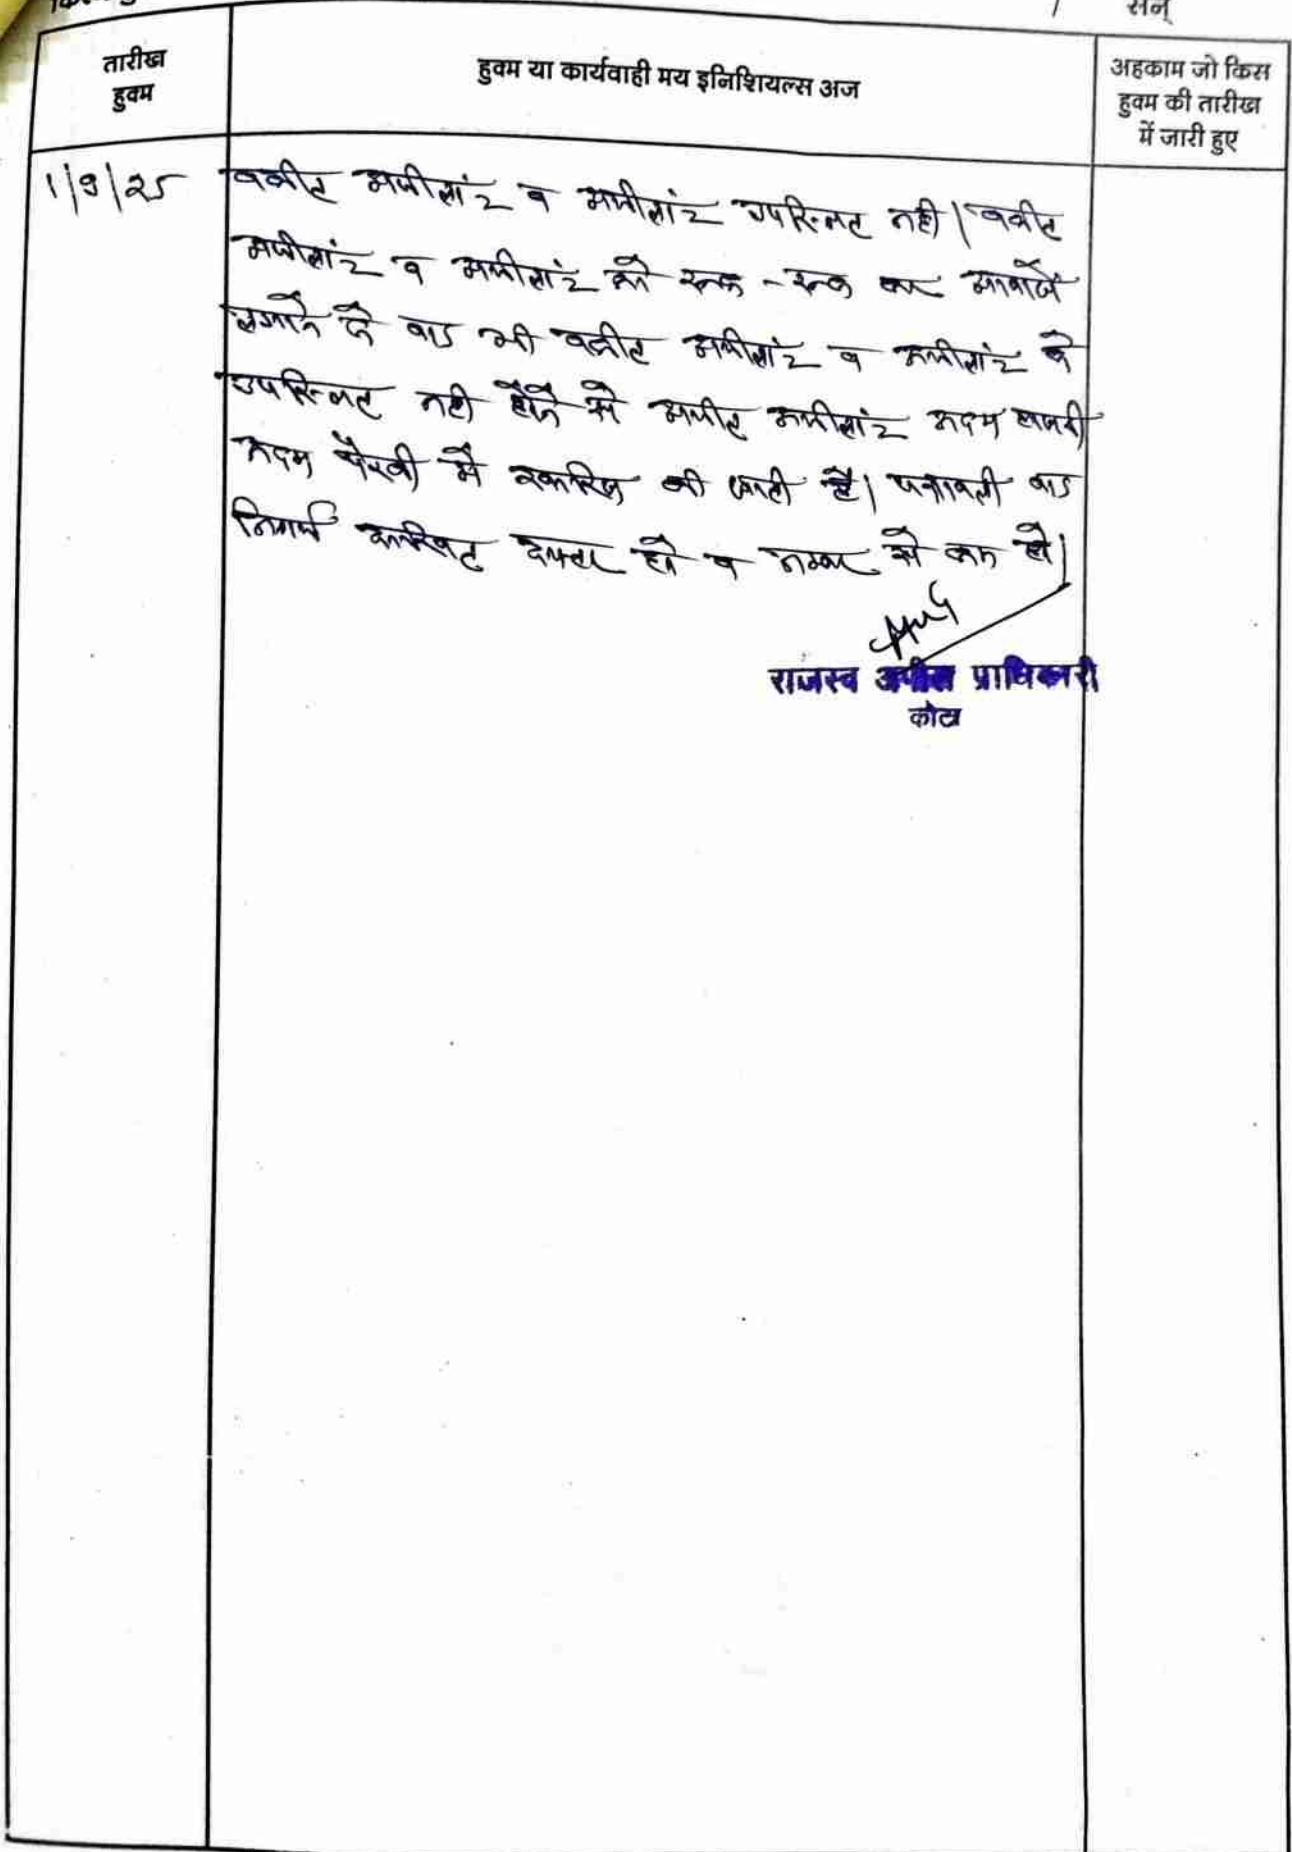 सन्
तारीख
हुक्म
हुक्म या कार्यवाही मय इनिशियल्स अज
अहकाम जो किस
हुक्म की तारीख
में जारी हुए
1/9/25
वकील अपीलांट व अपीलांट उपस्थित नही। वकील
अपीलांट व अपीलांट को रुक-रुक कर आवाजें
लगाने के बाद भी वकील अपीलांट व अपीलांट के
उपस्थित नही होने से अपील अपीलांट अदम हाजरी
अदम पैरवी में खारिज की जाती है। पत्रावली बाद
दाखिल दफ्तर हो व नम्बर से कम हो।
राजस्व अपील प्राधिकारी
कोटा